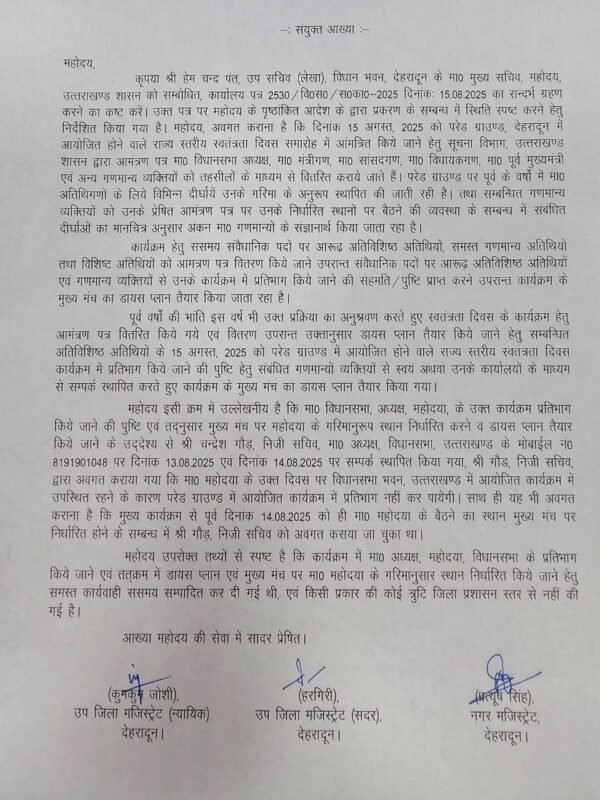 -: संयुक्त आख्या :-
महोदय,
कृपया श्री हेम चन्द पंत, उप सचिव (लेखा), विधान भवन, देहरादून के मा0 मुख्य सचिव, महोदय,
उत्तराखण्ड शासन को सम्बोधित, कार्यालय पत्र 2530/वि0स0/स0का10-2025 दिनांकः 15.08.2025 का सन्दर्भ ग्रहण
करने का कष्ट करें। उक्त पत्र पर महोदय के पृष्ठांकित आदेश के द्वारा प्रकरण के सम्बन्ध में स्थिति स्पष्ट करने हेतु
निर्देशित किया गया है। महोदय, अवगत कराना है कि दिनांक 15 अगस्त, 2025 को परेड ग्राउण्ड, देहरादून में
आयोजित होने वाले राज्य स्तरीय स्वतंत्रता दिवस समारोह में आंमत्रित किये जाने हेतु सूचना विभाग, उत्तराखण्ड
शासन द्वारा आमंत्रण पत्र मा0 विधानसभा अध्यक्ष, मा0 मंत्रीगण, मा0 सांसदगण, मा0 विधायकगण, मा0 पूर्व मुख्यमंत्री
एवं अन्य गणमान्य व्यक्तियों को तहसीलों के माध्यम से वितरित कराये जाते हैं। परेड ग्राउण्ड पर पूर्व के वर्षो में मा0
अतिथिगणों के लिये विभिन्न दीर्घायें उनके गरिमा के अनुरूप स्थापित की जाती रही है। तथा सम्बन्धित गणमान्य
व्यक्तियों को उनके प्रेषित आमंत्रण पत्र पर उनके निर्धारित स्थानों पर बैठने की व्यवस्था के सम्बन्ध में संबंधित
दीर्घाओं का मानचित्र अनुसार अंकन मा0 गणमान्यों के संज्ञानार्थ किया जाता रहा है।
कार्यक्रम हेतु ससमय सवैधानिक पदों पर आरूढ़ अतिविशिष्ठ अतिथियों, समस्त गणमान्य अतिथियों
तथा विशिष्ट अतिथियों को आंमत्रण पत्र वितरण किये जाने उपरान्त संवैधानिक पदों पर आरूढ़ अतिविशिष्ठ अतिथियों
एवं गणमान्य व्यक्तियों से उनके कार्यक्रम में प्रतिभाग किये जाने की सहमति/पुष्टि प्राप्त करने उपरान्त कार्यक्रम के
मुख्य मंच का डायस प्लान तैयार किया जाता रहा है।
पूर्व वर्षो की भांति इस वर्ष भी उक्त प्रक्रिया का अनुश्रवण करते हुए स्वतंत्रता दिवस के कार्यक्रम हेतु
आमंत्रण पत्र वितिरित किये गये एवं वितरण उपरान्त उक्तानुसार डायस प्लान तैयार किये जाने हेतु सम्बन्धित
अतिविशिष्ठ अतिथियों के 15 अगस्त, 2025 को परेड ग्राउण्ड में आयोजित होने वाले राज्य स्तरीय स्वतंत्रता दिवस
कार्यक्रम में प्रतिभाग किये जाने की पुष्टि हेतु संबधित गणमान्यों व्यक्तियों से स्वयं अथवा उनके कार्यालयों के माध्यम
से सम्पर्क स्थापित करते हुए कार्यक्रम के मुख्य मंच का डायस प्लान तैयार किया गया।
महोदय इसी क्रम में उल्लेखनीय है कि मा0 विधानसभा, अध्यक्ष, महोदया, के उक्त कार्यक्रम प्रतिभाग
किये जाने की पुष्टि एवं तद्नुसार मुख्य मंच पर महोदया के गरिमानुरूप स्थान निर्धारित करने व डायस प्लान तैयार
किये जाने के उद्देश्य से श्री चन्द्रेश गौड़, निजी सचिव, मा0 अध्यक्ष, विधानसभा, उत्तराखण्ड के मोबाईल न0
8191901048 पर दिनांक 13.08.2025 एवं दिनांक 14.08.2025 पर सम्पर्क स्थापित किया गया, श्री गौड़, निजी सचिव,
द्वारा अवगत कराया गया कि मा0 महोदया के उक्त दिवस पर विधानसभा भवन, उत्तराखण्ड में आयोजित कार्यक्रम में
उपस्थित रहने के कारण परेड ग्राउण्ड में आयोजित कार्यक्रम में प्रतिभाग नहीं कर पायेंगी। साथ ही यह भी अवगत
कराना है कि मुख्य कार्यक्रम से पूर्व दिनांक 14.08.2025 को ही मा0 महोदया के बैठने का स्थान मुख्य मंच पर
निर्धारित होने के सम्बन्ध में श्री गौड़, निजी सचिव को अवगत कराया जा चुका था।
महोदय उपरोक्त तथ्यों से स्पष्ट है कि कार्यक्रम में मा0 अध्यक्ष, महोदया, विधानसभा के प्रतिभाग
किये जाने एवं तत्क्रम में डायस प्लान एवं मुख्य मंच पर मा0 महोदया के गरिमानुसार स्थान निर्धारित किये जाने हेतु
समस्त कार्यवाही ससमय सम्पादित कर दी गई थी, एवं किसी प्रकार की कोई त्रुटि जिला प्रशासन स्तर से नहीं की
गई है।
आख्या महोदय की सेवा में सादर प्रेषित।
(कुमकुम जोशी), (हरगिरी), (प्रत्यूष सिंह),
उप जिला मजिस्ट्रेट (न्यायिक), उप जिला मजिस्ट्रेट (सदर), नगर मजिस्ट्रेट,
देहरादून। देहरादून। देहरादून।